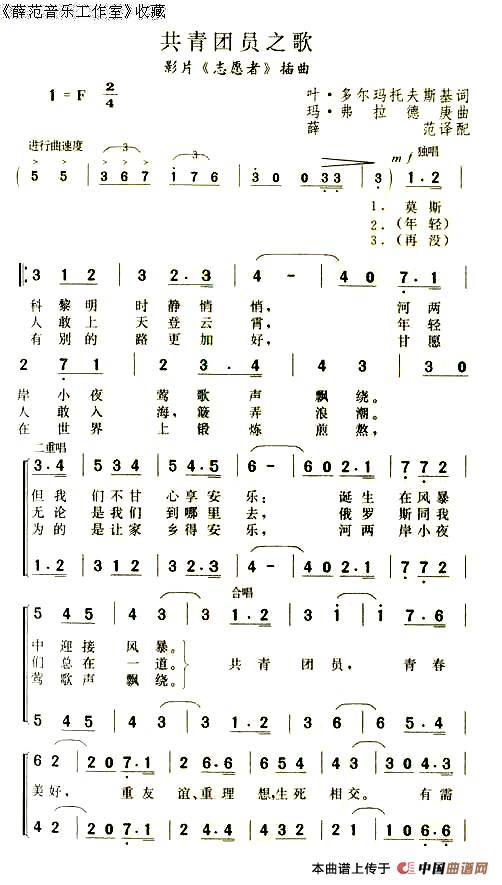 《薛范音乐工作室》收藏
共青团员之歌
影片《志愿者》插曲
1=F 2/4
叶·多尔玛托夫斯基词
玛·弗拉德庚曲
薛范译配
进行曲速度
mf 独唱
( 5 5 | 3 6 7 1 7 6 | 3 0 0 33 | 3 ) 1·2 |
1. 莫斯
2.(年轻)
3.(再没)
3 1 2 | 3 2·3 | 4 - | 4 0 7·1 |
科黎明时静悄悄, 河两
人敢上天登云霄, 年轻
有别的路更加好, 甘愿
2 7 1 | 2 3·4 | 4 3 | 3 0
岸小夜莺歌声飘绕。
人敢入海,簸弄浪潮。
在世界上锻炼煎熬,
二重唱
3·4 | 5 3 4 | 5 4·5 | 6 - | 6 0 2·1 | 7 7 2 |
但我们不甘心享安乐; 诞生在风暴
无论是我们到哪里去, 俄罗斯同我
为的是让家乡得安乐, 河两岸小夜
1·2 | 3 1 2 | 3 2·3 | 4 - | 4 0 2·1 | 7 7 2 |
合唱
5 4 5 | 4 3 | 3 1·2 | 3 i | i 7·6 |
中迎接风暴。
们总在一道。 共青团员,青春
莺歌声飘绕。
5 4 5 | 4 3 | 3 1·2 | 3 6 | 6 5·4 |
6 2 | 2 0 7·1 | 2 6·6 | 6 5 4 | 3 0 4·3 |
美好, 重友谊、重理想,生死相交。 有需
4 2 | 2 0 7·1 | 2 4·4 | 4 3 2 | 1 0 6·6 |
本曲谱上传于 中国曲谱网